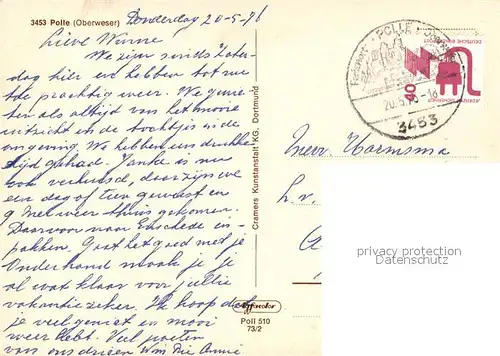 3453 Polle (Oberweser)
Donderdag 20-5-76
Lieve Winne
We zijn sinds Zater-
dag hier en hebben tot nu
toe prachtig weer. We genie-
ten als altijd van het mooie
uitzicht en de tochtjes in de
omgeving. We hebben een drukke
tijd gehad. Janke is nu
ook verhuisd, daar zijn we
een dag of tien geweest en
9 Mei weer thuis gekomen.
Daarvoor naar Enschede in-
pakken. Gaat het goed met je
Onderhand maak je je
al wat klaar voor jullie
vakantie zeker. Ik hoop dat
je veel geniet en mooi
weer hebt. Veel groeten
van ons drieën Wim Pie Annie
Cramers Kunstanstalt KG, Dortmund
Poll 510
73/2
POLLE
20.5.76-16
3453
DEUTSCHE BUNDESPOST
40
Mevr. Harmsma
privacy protection
Datenschutz